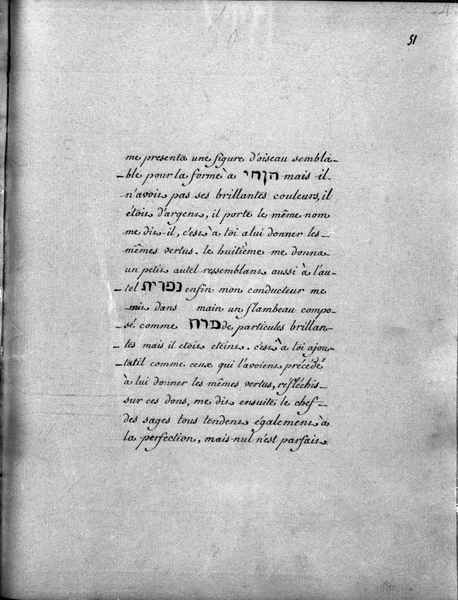 51
me presenta une figure d'oiseau sembla-
ble pour la forme à הןחי mais il
n'avoit pas ses brillantes couleurs, il
étoit d'argent, il porte le même nom
me dit-il, c'est à toi a lui donner les
mêmes vertus. le huitième me donna
un petit autel ressemblant aussi à l'au-
tel נפרית enfin mon conducteur me
mit dans main un flambeau compo-
sé comme מרח de particules brillan-
tes mais il etoit eteint. c'est à toi ajou
tatil comme ceux qui l'avoient précédé
à lui donner les mêmes vertus, refléchis
sur ces dons, me dit ensuite le chef
des sages tous tendent également à
la perfection, mais nul n'est parfait